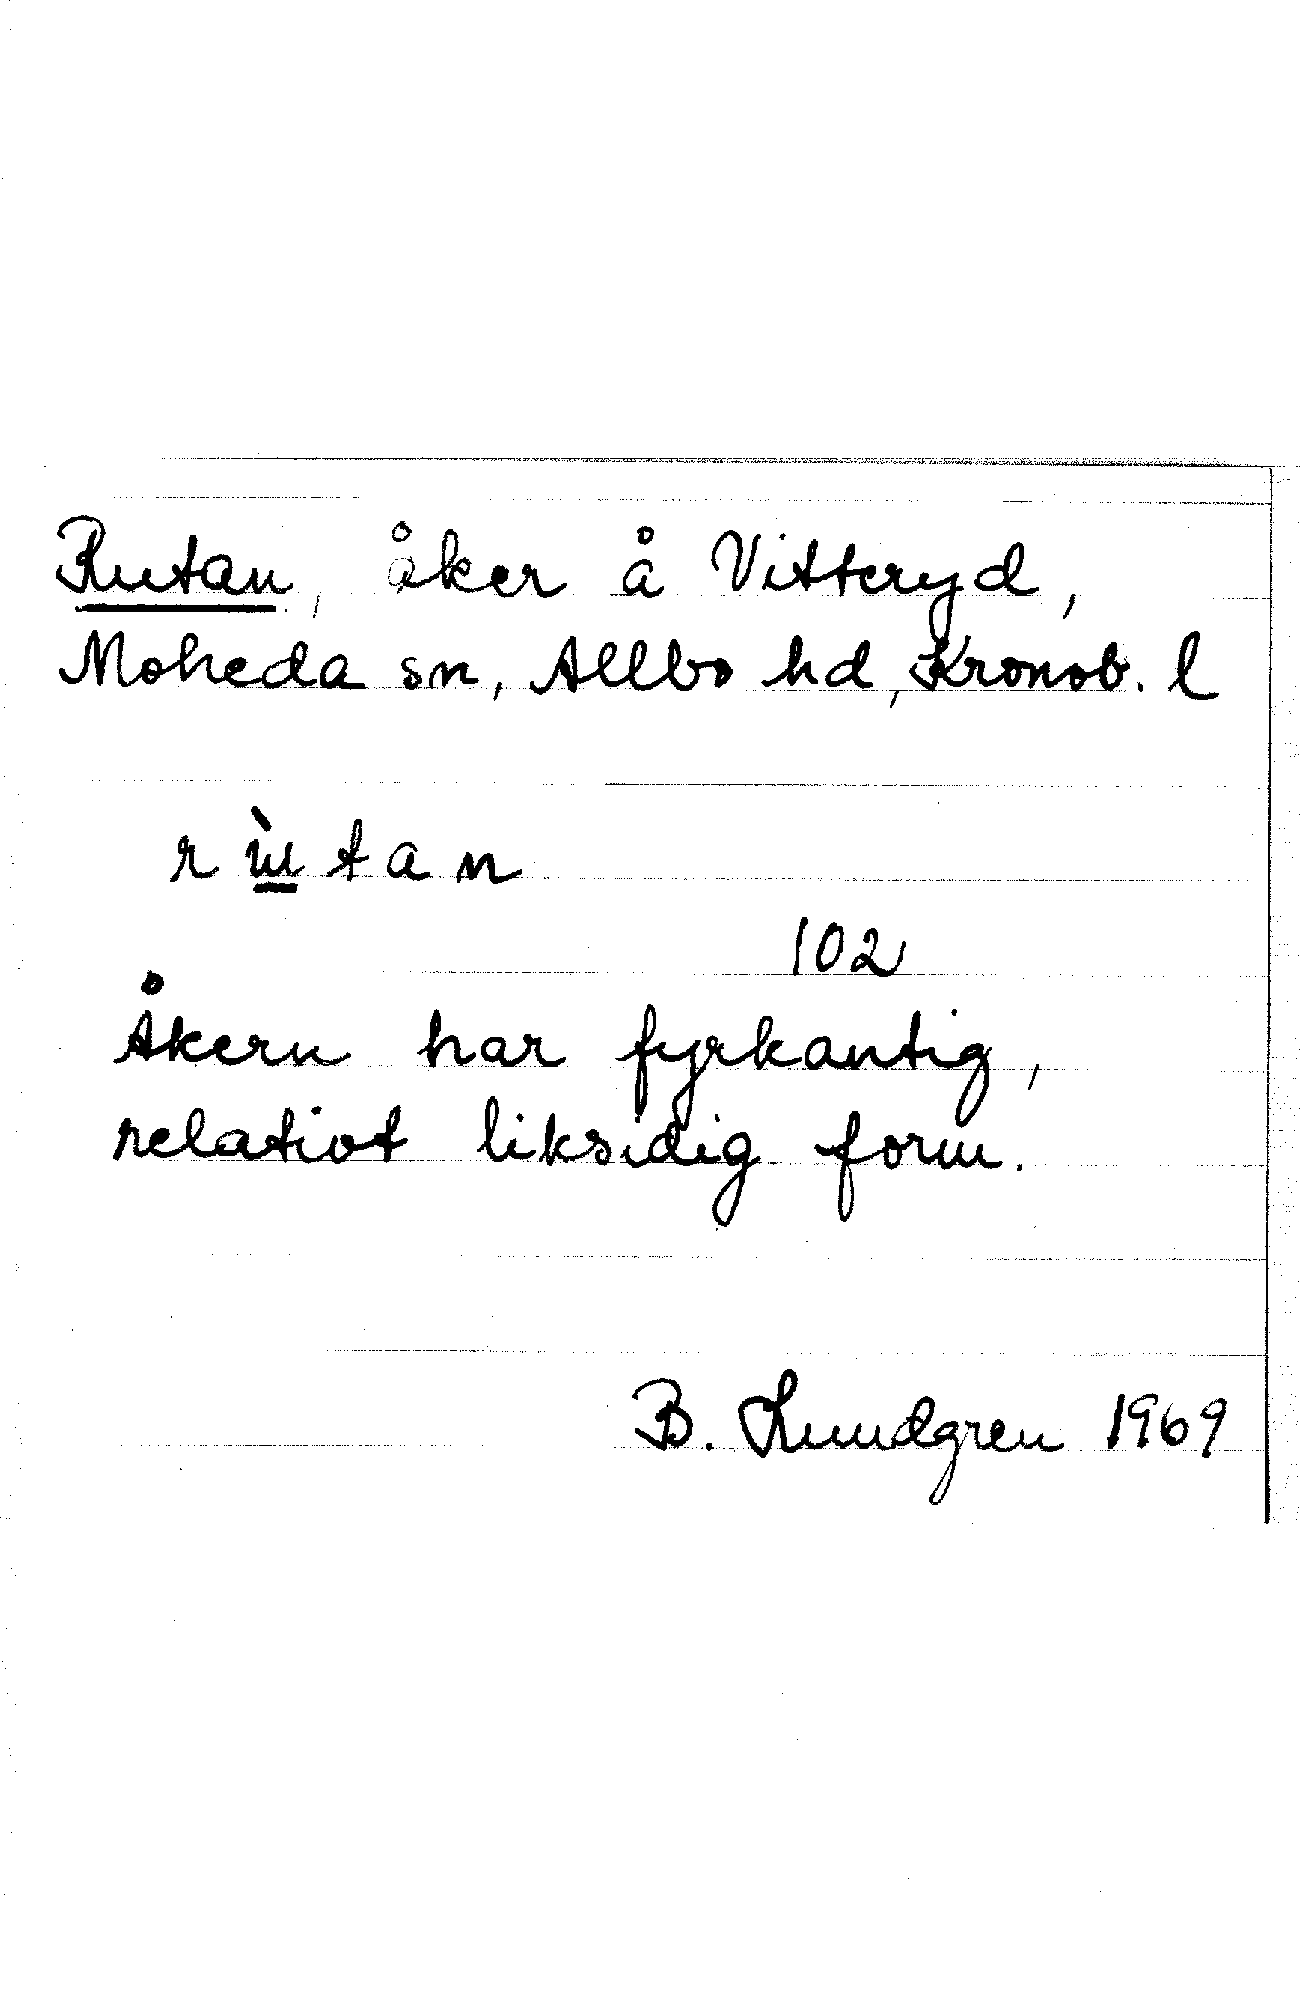 Rutan, åker å Vitteryd,
Moheda sn, Allbo hd, Kronob. l
r ù t a n
102
Åkern har fyrkantig,
relativt liksidig form.
B. Lundgren 1969